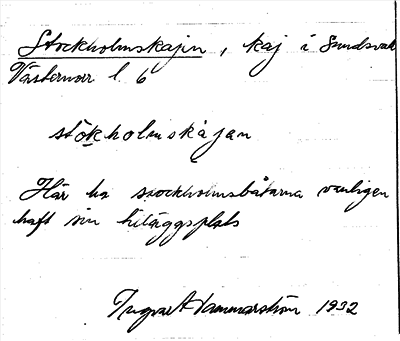 Stockholmskajen, kaj i Sundsvall
Västernorr l. 6
stòkholmskajan
Här ha stockholmsbåtarna vanligen
haft sin tilläggsplats
Ingvar Hammarström 1932